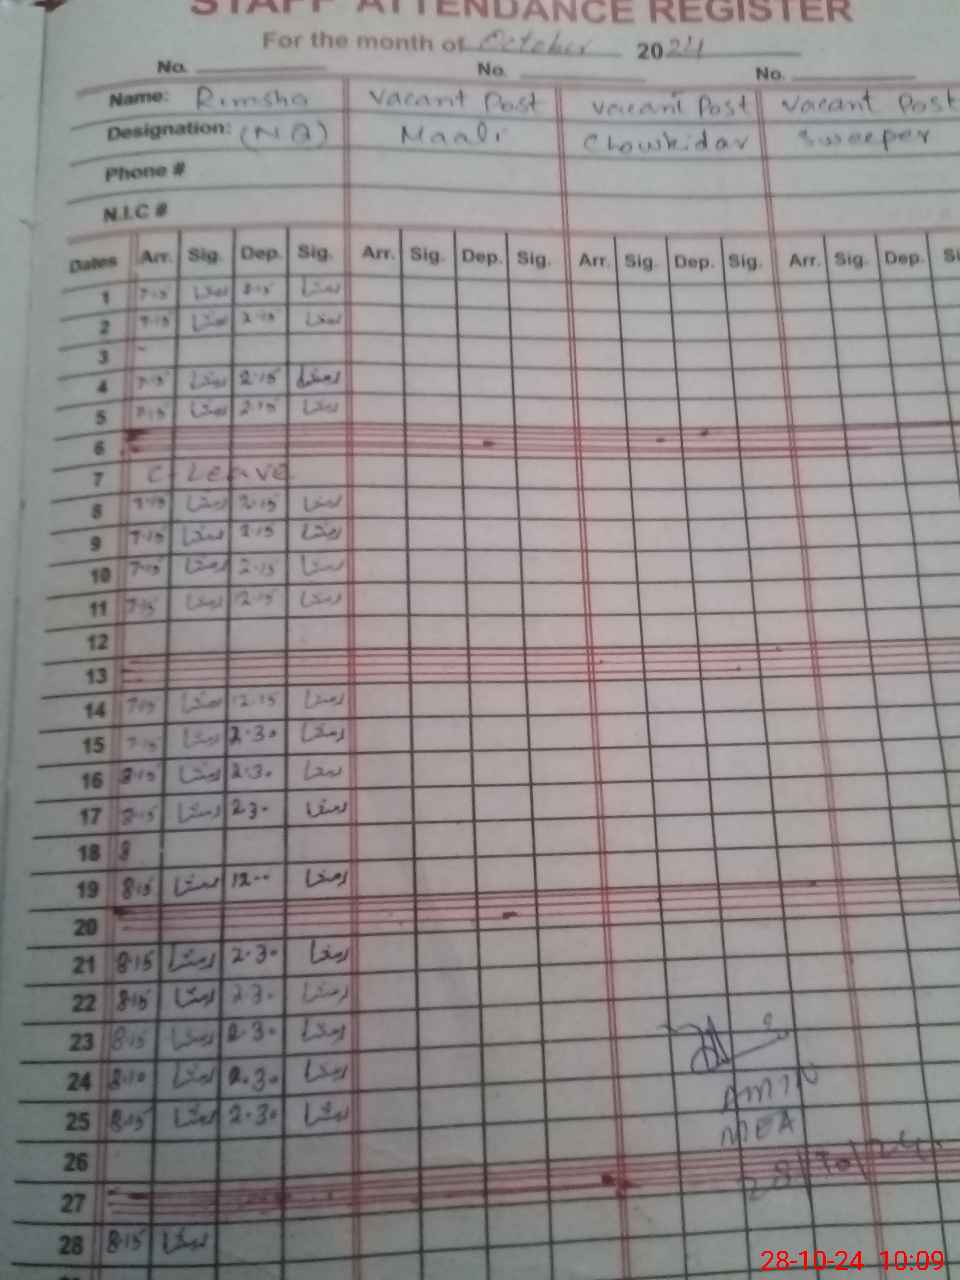 STAFF ATTENDANCE REGISTER
For the month of October 2024
No. No. No.
Name: Rimsha Vacant Post Vacant Post Vacant Post
Designation: (NQ) Maali Chowkidar Sweeper
Phone #
N.I.C #
Dates Arr. Sig. Dep. Sig. Arr. Sig. Dep. Sig. Arr. Sig. Dep. Sig. Arr. Sig. Dep.
1 7-15 رمشا رمشا
2 7-15 رمشا 2-15 رمشا
3
4 7-15 رمشا 2-15 رمشا
5 7-15 رمشا 2-15 رمشا
6
7 C-Leave
8 7-15 رمشا 2-15 رمشا
9 7-15 رمشا 2-15 رمشا
10 7-15 رمشا 2-15 رمشا
11 7-15 رمشا 12-15 رمشا
12
13
14 7-15 رمشا 12-15 رمشا
15 7-15 رمشا 2-30 رمشا
16 8-15 رمشا 2-30 رمشا
17 8-15 رمشا 2-30 رمشا
18 8
19 8-15 رمشا 12-- رمشا
20
21 8-15 رمشا 2-30 رمشا
22 8-15 رمشا 2-30 رمشا
23 8-15 رمشا 2-30 رمشا
24 8-10 رمشا 2-30 رمشا
AMIN
25 8-15 رمشا 2-30 رمشا
MEA
26
28/10/24
27
28 8-15 رمشا
28-10-24 10:09